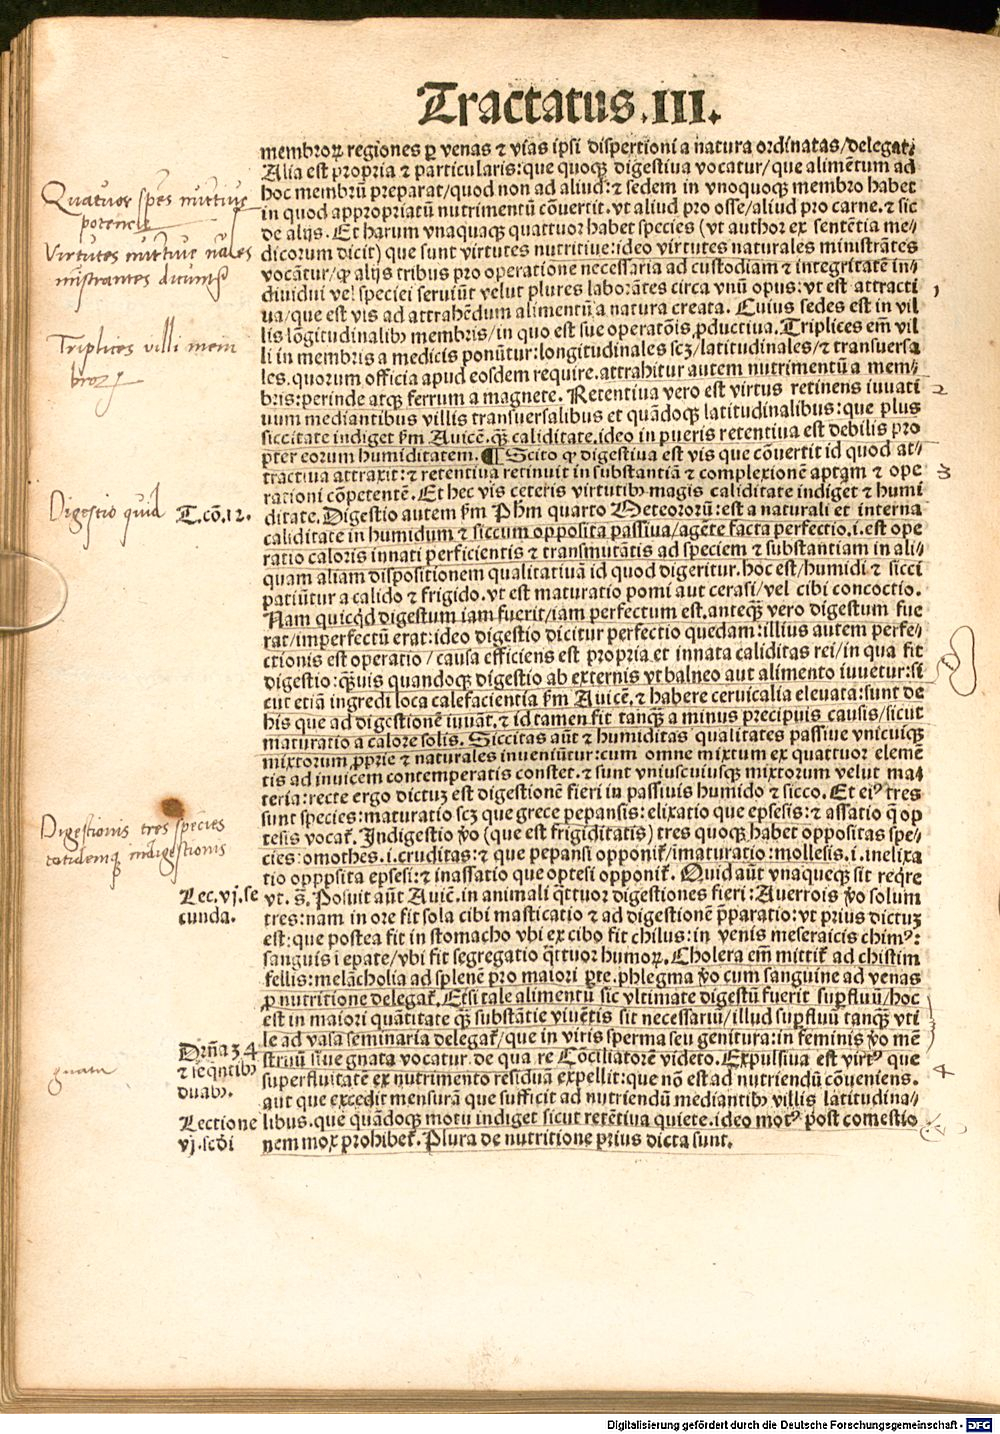 Tractatus.III.
membroꝝ regiones ꝑ venas ⁊ vias ipsi dispertioni a natura ordinatas/delegat:
Alia est propria ⁊ particularis:que quoqꝫ digestiua vocatur/que alimētum ad
hoc membrū preparat/quod non ad aliud:⁊ sedem in vnoquoqꝫ membro habet
in quod appropriatū nutrimentū cōuertit.vt aliud pro osse/aliud pro carne.⁊ sic
de alijs. Et harum vnaquaqꝫ quattuor habet species (vt author ex sentētia me⸗
dicorum dicit) que sunt virtutes nutritiue:ideo virtutes naturales ministrātes
vocātur/ꝙ alijs tribus pro operatione necessaria ad custodiam ⁊ integritatē in⸗
diuidui vel speciei seruiūt velut plures laborātes circa vnū opus:vt est attracti
ua/que est vis ad attrahēdum alimentū a natura creata. Cuius sedes est in vil
lis lōgitudinalibꝰ membris/in quo est sue operatōis ꝓductiua. Triplices em̄ vil
li in membris a medicis ponūtur:longitudinales scꝫ/latitudinales/⁊ transuersa
les.quorum officia apud eosdem require.attrahitur autem nutrimentū a mem⸗
bris:perinde atqꝫ ferrum a magnete. Retentiua vero est virtus retinens iuuati
uum mediantibus villis transuersalibus et quādoqꝫ latitudinalibus:que plus
siccitate indiget ẜm Auicē.qꝫ caliditate.ideo in pueris retentiua est debilis pro
pter eorum humiditatem. ¶ Scito ꝙ digestiua est vis que cōuertit id quod at⸗
tractiua attraxit:⁊ retentiua retinuit in substantiā ⁊ complexionē aptam ⁊ ope
rationi cōpetentē. Et hec vis ceteris virtutibꝰ magis caliditate indiget ⁊ humi
ditate. Digestio autem ẜm Phm̄ quarto Meteororū:est a naturali et interna
caliditate in humidum ⁊ siccum opposita passiua/agēte facta perfectio.i.est ope
ratio caloris innati perficientis ⁊ transmutātis ad speciem ⁊ substantiam in ali⸗
quam aliam dispositionem qualitatiuā id quod digeritur.hoc est/humidi ⁊ sicci
patiūtur a calido ⁊ frigido.vt est maturatio pomi aut cerasi/vel cibi concoctio.
Nam quicqͥd digestum iam fuerit/iam perfectum est.anteqꝫ vero digestum fue
rat/imperfectū erat:ideo digestio dicitur perfectio quedam:illius autem perfe⸗
ctionis est operatio/causa efficiens est propria et innata caliditas rei/in qua fit
digestio:qꝫuis quandoqꝫ digestio ab externis vt balneo aut alimento iuuetur:si
cut etiā ingredi loca calefacientia ẜm Auicē.⁊ habere ceruicalia eleuata:sunt de
his que ad digestionē iuuāt.⁊ id tamen fit tanqꝫ a minus precipuis causis/sicut
maturatio a calore solis. Siccitas aūt ⁊ humiditas qualitates passiue vnicuiqꝫ
mixtorum ꝓprie ⁊ naturales inueniūtur:cum omne mixtum ex quattuor elemē
tis ad inuicem contemperatis constet.⁊ sunt vniuscuiusqꝫ mixtorum velut ma⸗
teria:recte ergo dictuꝫ est digestionē fieri in passiuis humido ⁊ sicco. Et eiꝰ tres
sunt species:maturatio scꝫ que grece pepansis:elixatio que epsesis:⁊ assatio q̄ op
tesis vocat᷑. Indigestio ꝟo (que est frigiditatis) tres quoqꝫ habet oppositas spe⸗
cies:omothes.i.cruditas:⁊ que pepansi opponit᷑/īmaturatio:mollesis.i.inelixa
tio opppsita epsesi:⁊ inassatio que optesi opponit᷑. Quid aūt vnaquęqꝫ sit reqͥre
vt.s̄. Posuit aūt Auic̄.in animali qͣttuor digestiones fieri:Auerrois ꝟo solum
tres:nam in ore fit sola cibi masticatio ⁊ ad digestionē p̄paratio:vt prius dictuꝫ
est:que postea fit in stomacho vbi ex cibo fit chilus:in venis meseraicis chimꝰ:
sanguis i epate/vbi fit segregatio qͣttuor humoꝝ. Cholera em̄ mittit᷑ ad chistim
fellis:melācholia ad splenē pro maiori ꝑte.phlegma ꝟo cum sanguine ad venas
ꝓ nutritione delegat᷑. Etsi tale alimentū sic vltimate digestū fuerit supͥfluū/hoc
est in maiori quātitate qꝫ substātie viuētis sit necessariū/illud supͥfluū tanqꝫ vti
le ad vasa seminaria delegat᷑/que in viris sperma seu genitura:in feminis ꝟo mē
struū siue gnata vocatur.de qua re Cōciliatorē videto. Expulsiua est virtꝰ que
superfluitatē ex nutrimento residuā expellit:que nō est ad nutriendū cōueniens.
aut que excedit mensurā que sufficit ad nutriendū mediantibꝰ villis latitudina⸗
libus.que quādoqꝫ motu indiget sicut retētiua quiete.ideo motꝰ post comestio
nem mox prohibet᷑. Plura de nutritione prius dicta sunt.
Quatuor spēs nutritiue
potencie
Virtutes nutritiue nāles
mīstrantes dicuntur
Triplices villi mem
broꝝ
Digestio quid
T.cō.12.
Digestionis tres species
totidemqꝫ indigestionis
Lec.vj.se
cunda.
Drn̄a 34
⁊ seqn̄tibꝰ
duabꝰ.
gnata
Lectione
vj.scdi
1
2
3
4
Digitalisierung gefördert durch die Deutsche Forschungsgemeinschaft - DFG